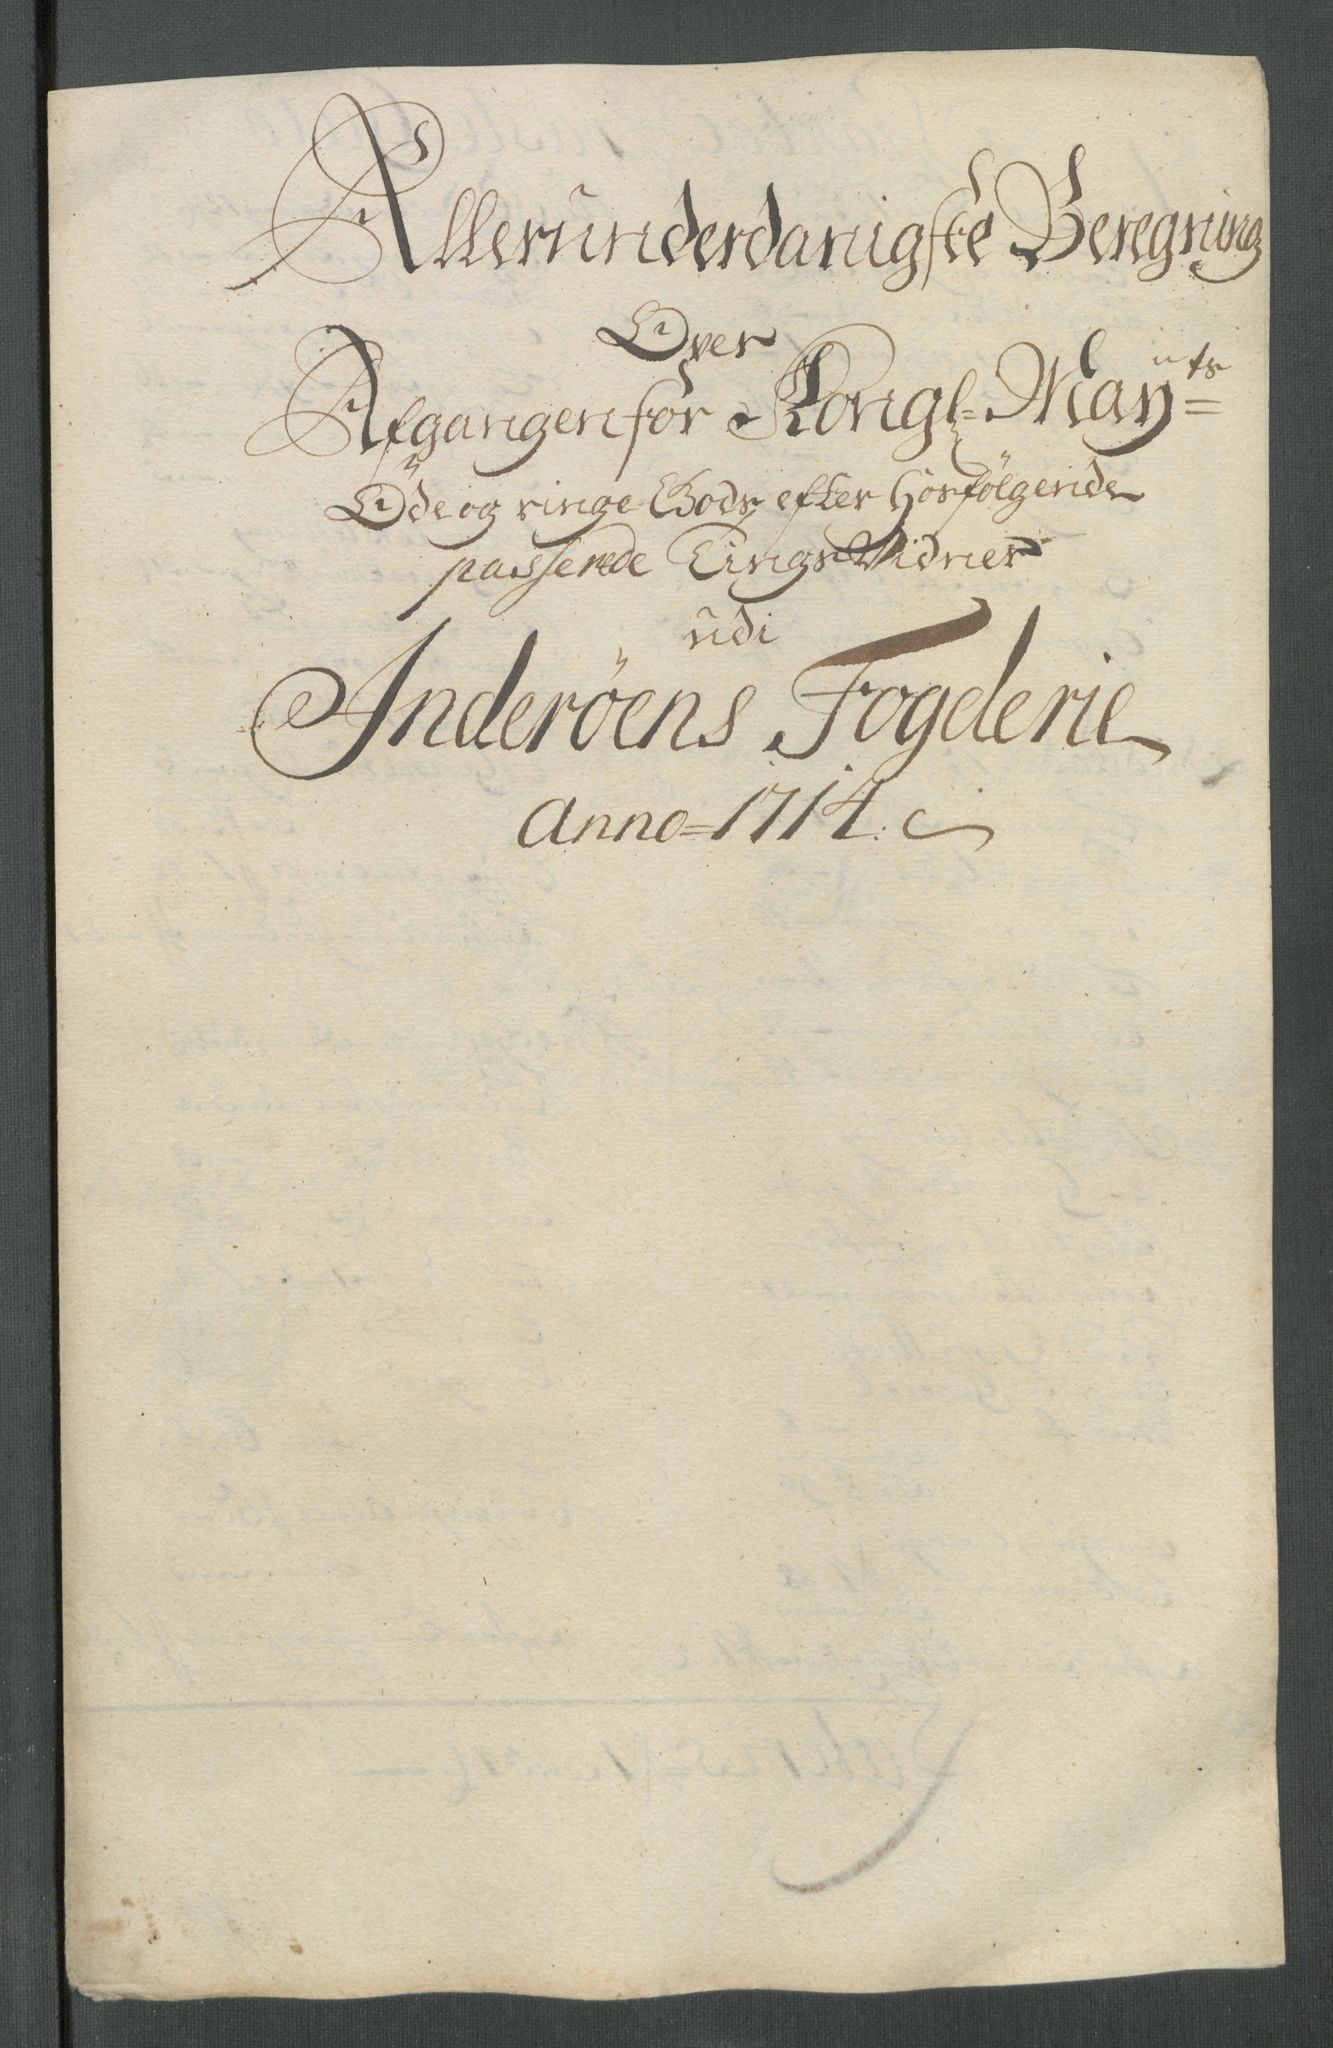 Allerunderdanigste Beregning
Over
Afgangen for Kongl. Mayts
Öde og ringe Gods efter Hosfölgende
passerede Tings Vidner
udi
Inderöens Fogderie
Anno 1714.